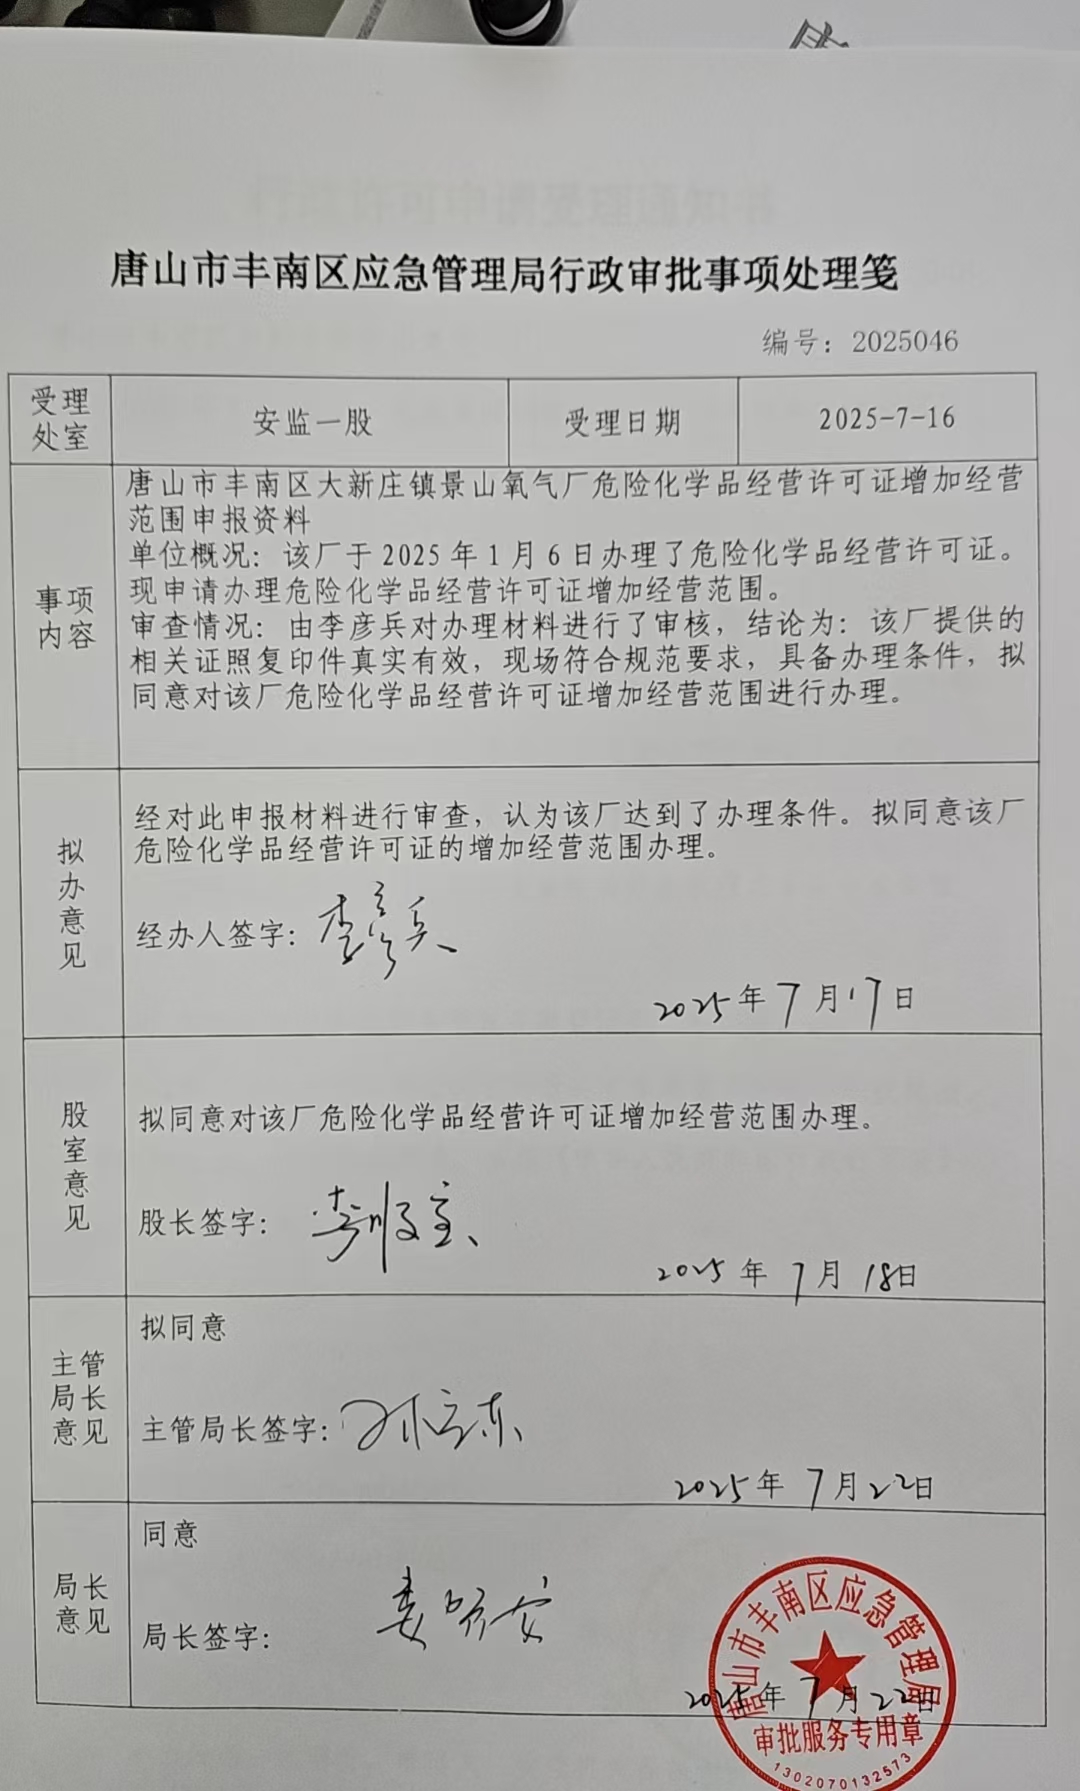 唐山市丰南区应急管理局行政审批事项处理笺
编号：2025046
受理处室
安监一股
受理日期
2025-7-16
事项内容
唐山市丰南区大新庄镇景山氧气厂危险化学品经营许可证增加经营
范围申报资料
单位概况：该厂于2025年1月6日办理了危险化学品经营许可证。
现申请办理危险化学品经营许可证增加经营范围。
审查情况：由李彦兵对办理材料进行了审核，结论为：该厂提供的
相关证照复印件真实有效，现场符合规范要求，具备办理条件，拟
同意对该厂危险化学品经营许可证增加经营范围进行办理。
拟办意见
经对此申报材料进行审查，认为该厂达到了办理条件。拟同意该厂
危险化学品经营许可证的增加经营范围办理。
经办人签字：李彦兵
2025年7月17日
股室意见
拟同意对该厂危险化学品经营许可证增加经营范围办理。
股长签字：
2025年7月18日
主管局长意见
拟同意
主管局长签字：
2025年7月22日
局长意见
同意
局长签字：
2025年7月22日
唐山市丰南区应急管理局
审批服务专用章
1302070132573